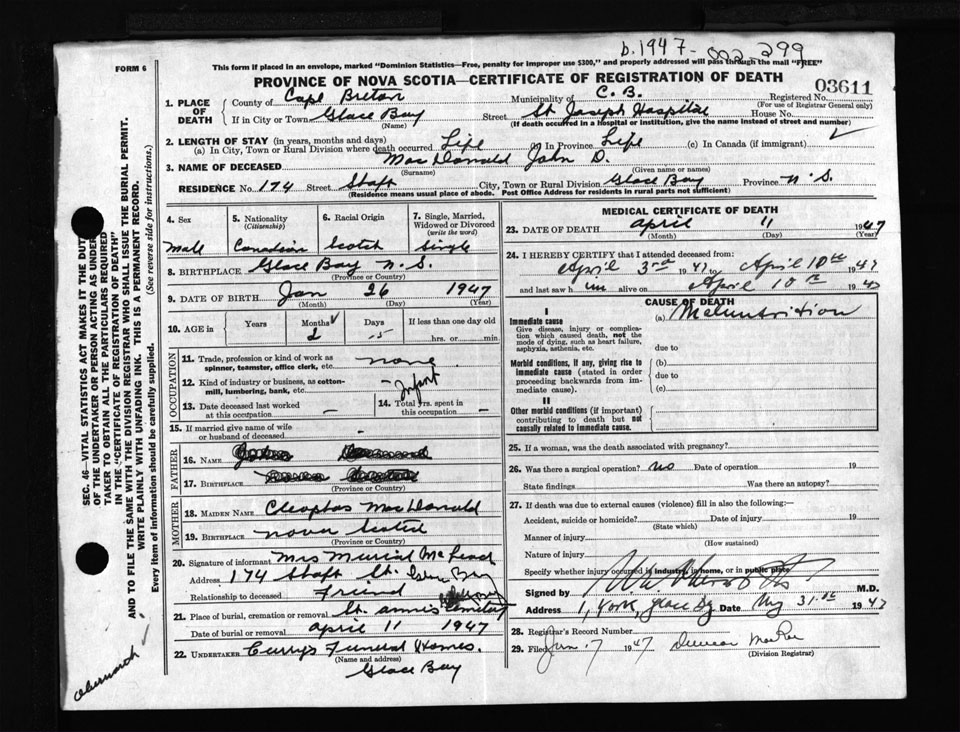 b. 1947-002299
FORM 6
This form if placed in an envelope, marked "Dominion Statistics—Free, penalty for improper use $300," and properly addressed will pass through the mail "FREE"
PROVINCE OF NOVA SCOTIA—CERTIFICATE OF REGISTRATION OF DEATH
03611
1. PLACE OF DEATH
County of Cape Breton Municipality of C. B. Registered No.
(For use of Registrar General only)
If in City or Town Glace Bay Street St. Joseph Hospital House No.
(Name) (If death occurred in a hospital or institution, give the name instead of street and number)
2. LENGTH OF STAY (in years, months and days)
(a) In City, Town or Rural Division where death occurred Life (b) In Province Life (c) In Canada (if immigrant) ✓
3. NAME OF DECEASED MacDonald John D.
(Surname) (Given name or names)
RESIDENCE No. 174 Street Shaft City, Town or Rural Division Glace Bay Province N. S.
(Residence means usual place of abode. Post Office Address for residents in rural parts not sufficient)
4. Sex
5. Nationality (Citizenship)
6. Racial Origin
7. Single, Married, Widowed or Divorced (write the word)
Male Canadian Scotch Single
8. BIRTHPLACE Glace Bay N. S.
(Province or Country)
9. DATE OF BIRTH Jan 26 1947
(Month) (Day) (Year)
10. AGE in Years Months Days If less than one day old
2 15 hrs. or min.
OCCUPATION
11. Trade, profession or kind of work as spinner, teamster, office clerk, etc. none
12. Kind of industry or business, as cotton-mill, lumbering, bank, etc. - Infant
13. Date deceased last worked at this occupation —
14. Total yrs. spent in this occupation —
15. If married give name of wife or husband of deceased —
FATHER
16. NAME
17. BIRTHPLACE
(Province or Country)
MOTHER
18. MAIDEN NAME Cleophas MacDonald
19. BIRTHPLACE Nova Scotia
(Province or Country)
20. Signature of informant Mrs Muriel McLeod
Address 174 Shaft St. Glace Bay
Relationship to deceased Friend
21. Place of burial, cremation or removal St. Anns Cemetery
Date of burial or removal April 11 1947
22. UNDERTAKER Currys Funeral Homes.
(Name and address)
Glace Bay
MEDICAL CERTIFICATE OF DEATH
23. DATE OF DEATH April 11 1947
(Month) (Day) (Year)
24. I HEREBY CERTIFY that I attended deceased from
April 3rd 1947 to April 10th 1947
and last saw him alive on April 10th 1947
CAUSE OF DEATH
I
Immediate cause
(a) Malnutrition
Give disease, injury or complication which caused death, not the mode of dying, such as heart failure, asphyxia, asthenia, etc.
due to
Morbid conditions, if any, giving rise to immediate cause (stated in order proceeding backwards from immediate cause).
(b)
due to
(c)
II
Other morbid conditions (if important) contributing to death but not causally related to immediate cause.
25. If a woman, was the death associated with pregnancy?
26. Was there a surgical operation? no Date of operation 19
State findings Was there an autopsy?
27. If death was due to external causes (violence) fill in also the following:—
Accident, suicide or homicide? Date of injury 19
(State which)
Manner of injury
(How sustained)
Nature of injury
Specify whether injury occurred in industry, in home, or in public place
Signed by M.D.
Address 1, York, Glace Bay Date May 31st 1947
28. Registrar's Record Number
29. Filed Jun 7 1947 Duncan MacRae
(Division Registrar)
SEC. 46—VITAL STATISTICS ACT MAKES IT THE DUTY
OF THE UNDERTAKER OR PERSON ACTING AS UNDER-
TAKER TO OBTAIN ALL THE PARTICULARS REQUIRED
IN THE "CERTIFICATE OF REGISTRATION OF DEATH"
AND TO FILE THE SAME WITH THE DIVISION REGISTRAR WHO SHALL ISSUE THE BURIAL PERMIT.
WRITE PLAINLY WITH UNFADING INK. THIS IS A PERMANENT RECORD.
Every item of information should be carefully supplied. (See reverse side for instructions.)